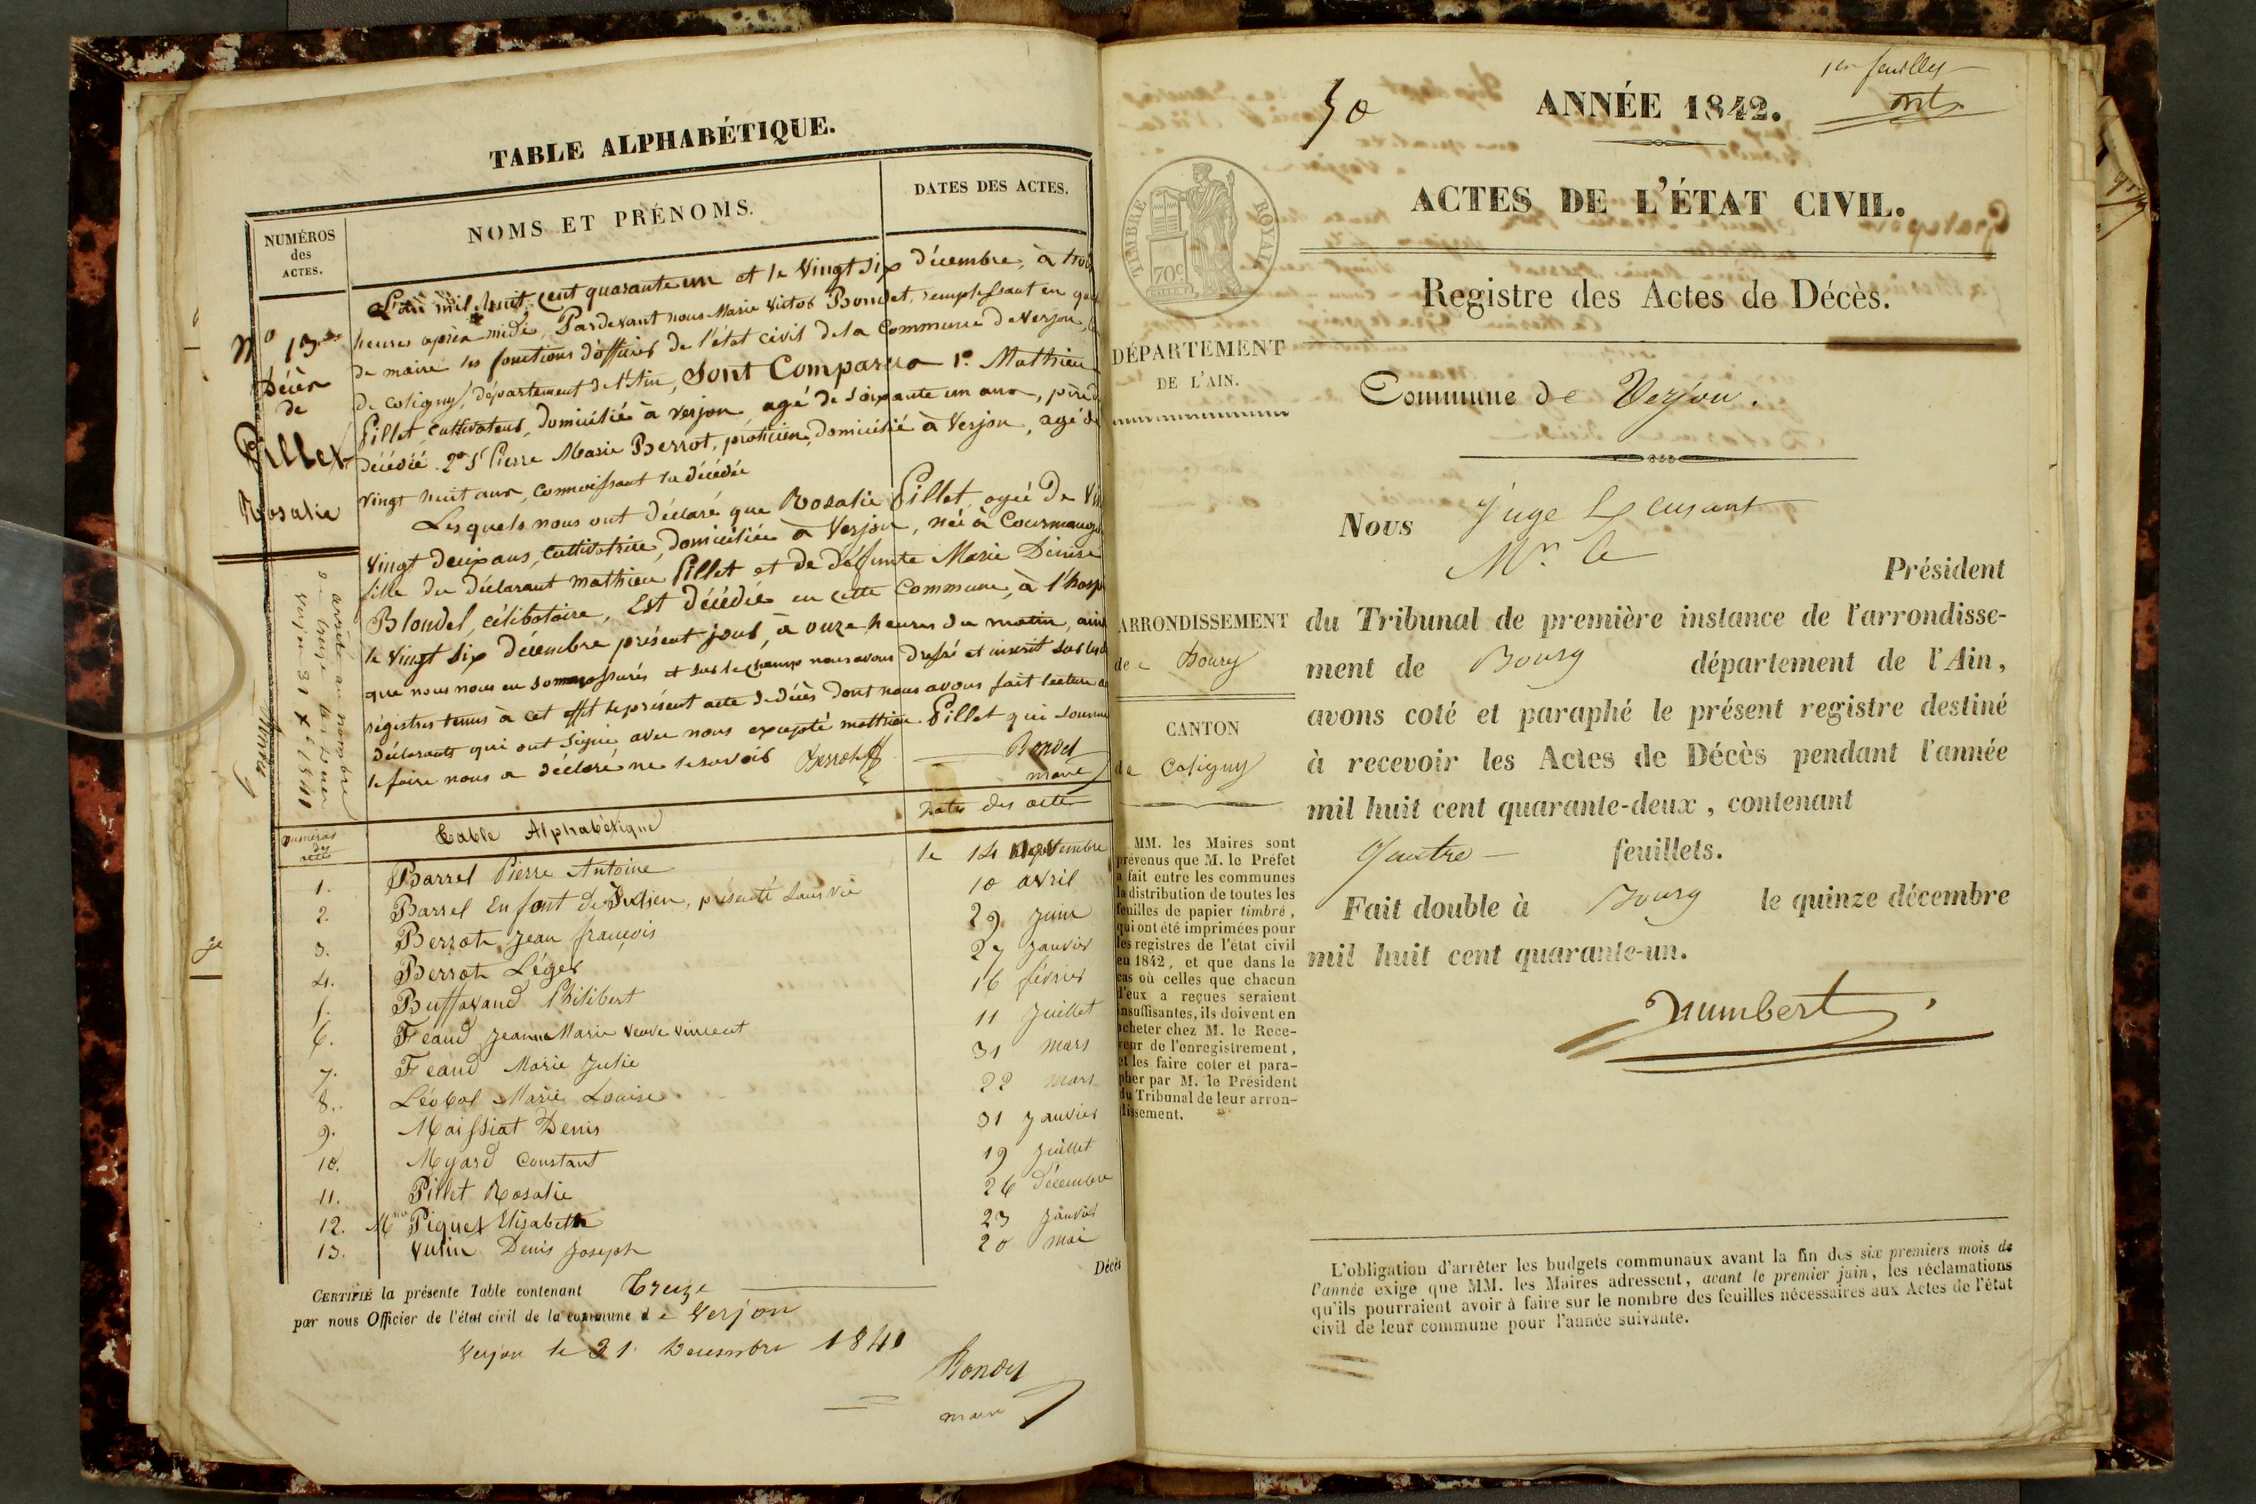 TABLE ALPHABÉTIQUE.
NUMÉROS
des
ACTES.
NOMS ET PRÉNOMS.
DATES DES ACTES.
N° 13
Décès
de
Pillet
Rosalie
arrêté au nombre
de treize
Verjon 31 Xbre 1841
L'an mil huit cent quarante un et le vingt six décembre, à trois
heures après midi, Pardevant nous Marie Victor Bondet, remplissant en qua
de maire les fonctions d'officier de l'état civil de la commune de Verjon,
de coligny, département de l'Ain, Sont Comparus 1° Mathieu
Pillet, cultivateur, domicilié à verjon agé de soixante un ans, père d
décédée. 2° Sr Pierre Marie Berrot, praticien, domicilié à Verjon, agé de
vingt huit ans, connoissant la décédée
Lesquels nous ont déclaré que Rosalie Pillet, agée de
vingt deux ans, cultivatrice, domiciliée à Verjon, née à Courmangou
fille du déclarant mathieu Pillet et de deffunte Marie Denise
Blondel, célibataire, Est décédée en cette commune, à l'hosp
le vingt six décembre présent jour, à onze heures du matin, ains
que nous nous en sommes assurés et sur le champ nous avons dressé et inscrit sur les d
régistres tenus à cet effet le présent acte de décès dont nous avons fait lecture a
déclarants qui ont signé avec nous excepté mathieu Pillet qui
le faire nous a déclaré ne le savoir Berrot
Bondet
maire
numéros
des
actes
Table Alphabétique
Dates des actes
1. Barrel Pierre Antoine le 14 Novembre
2. Barrel Enfant de Julien, présenté sans vie 10 avril
3. Berrot Jean françois 29 Juin
4. Berrot Léger 27 Janvier
5. Buffavand Philibert 16 février
6. Feaud Jeanne Marie veuve vincent 11 Juillet
7. Feaud Marie Julie 31 mars
8. Marie Louise 22 mars
9. Maissiat Denis 31 Janvier
10. Myard Constant 19 Juillet
11. Pillet Rosalie 26 décembre
12. Piquet Elisabeth 23 Janvier
13. Vulin Denis Joseph 20 mai
Décès
CERTIFIÉ la présente Table contenant Treize
par nous Officier de l'état civil de la commune de Verjon
Verjon le 31 Décembre 1841
Bondet
maire
1er feuillet
50
ANNÉE 1842.
TIMBRE ROYAL
70c
ACTES DE L'ÉTAT CIVIL.
Registre des Actes de Décès.
DÉPARTEMENT
DE L'AIN.
Commune de Verjon.
Nous Juge
Mr. le
Président
ARRONDISSEMENT
de Bourg
CANTON
de Coligny
du Tribunal de première instance de l'arrondisse-
ment de Bourg département de l'Ain,
avons coté et paraphé le présent registre destiné
à recevoir les Actes de Décès pendant l'année
mil huit cent quarante-deux, contenant
Quatre feuillets.
Fait double à Bourg le quinze décembre
mil huit cent quarante-un.
MM. les Maires sont
prévenus que M. le Préfet
a fait entre les communes
la distribution de toutes les
feuilles de papier timbré,
qui ont été imprimées pour
les registres de l'état civil
en 1842, et que dans le
cas où celles que chacun
d'eux a reçues seraient
insuffisantes, ils doivent en
acheter chez M. le Rece-
veur de l'enregistrement,
et les faire coter et para-
pher par M. le Président
du Tribunal de leur arron-
dissement.
L'obligation d'arrêter les budgets communaux avant la fin des six premiers mois de
l'année exige que MM. les Maires adressent, avant le premier juin, les réclamations
qu'ils pourraient avoir à faire sur le nombre des feuilles nécessaires aux Actes de l'état
civil de leur commune pour l'année suivante.